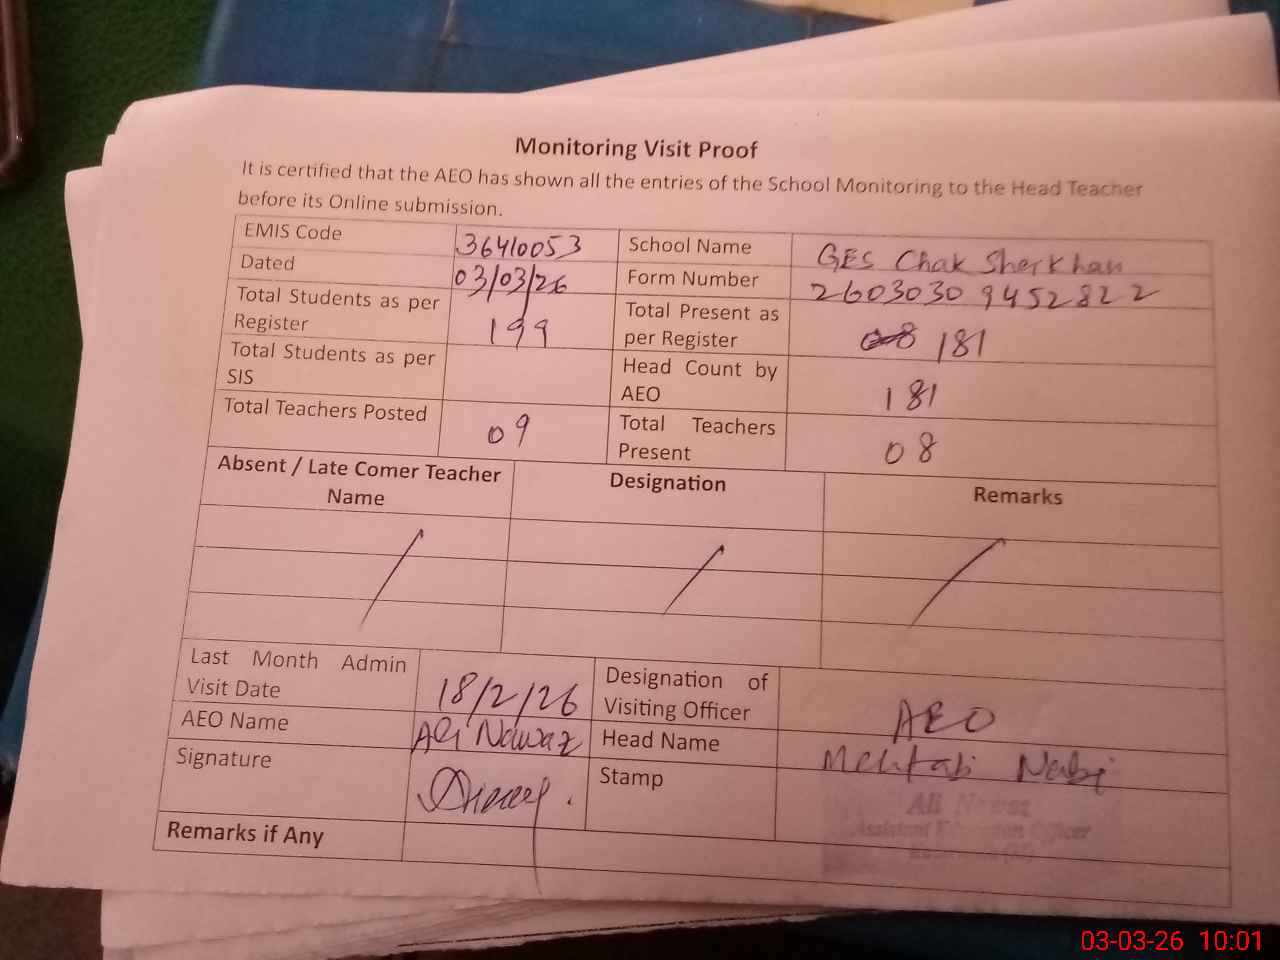 Monitoring Visit Proof
It is certified that the AEO has shown all the entries of the School Monitoring to the Head Teacher
before its Online submission.
EMIS Code 36410053 School Name GES Chak Sherkhan
Dated 03/03/26 Form Number 2603030 9452822
Total Students as per Register 199 Total Present as per Register 08 181
Total Students as per SIS Head Count by AEO 181
Total Teachers Posted 09 Total Teachers Present 08
Absent / Late Comer Teacher Name Designation Remarks
Last Month Admin Visit Date 18/2/26 Designation of Visiting Officer AEO
AEO Name Ali Nawaz Head Name Mehtab Nabi
Signature Stamp
Ali Nawaz
Assistant Education Officer
Remarks if Any
03-03-26 10:01